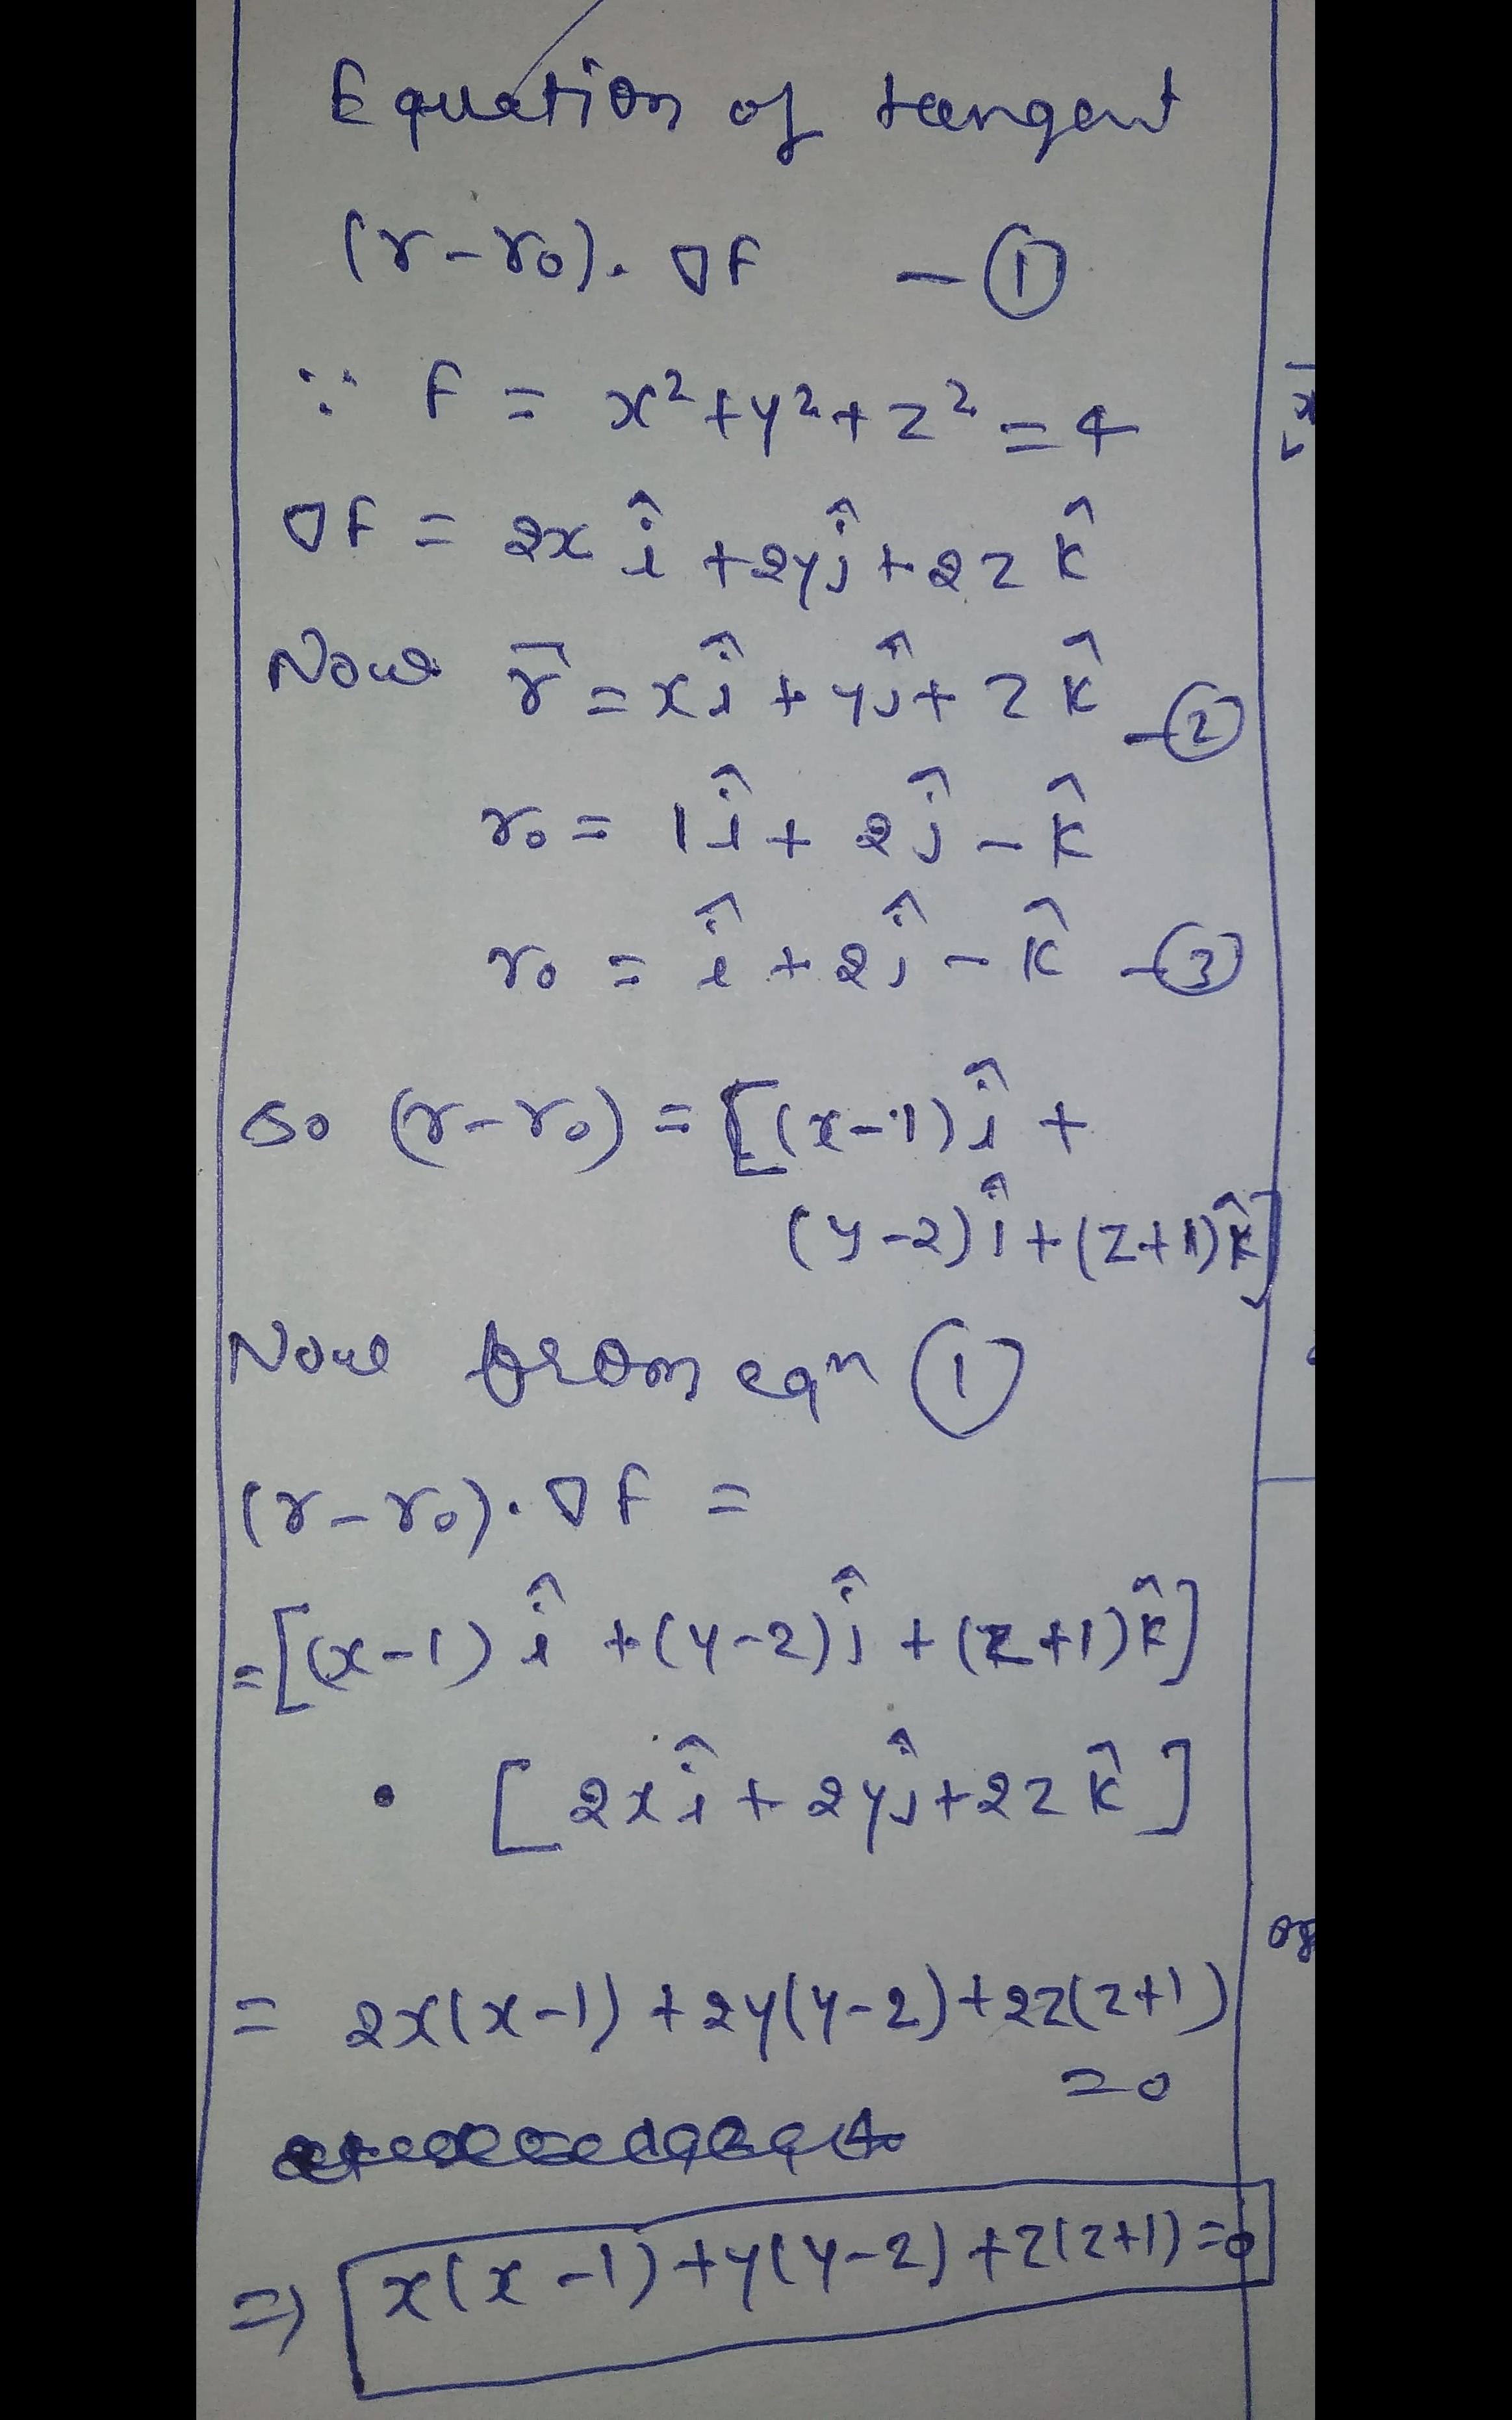 Equation of tangent
(r-r₀). ∇F - ①
∵ F = x²+y²+z² = 4
∇F = 2x î + 2y ĵ + 2z k̂
Now r̄ = x î + y ĵ + z k̂ - ②
r₀ = 1 î + 2 ĵ - k̂
r₀ = î + 2 ĵ - k̂ - ③
So (r-r₀) = [(x-1) î +
(y-2) ĵ + (z+1) k̂]
Now from eqⁿ ①
(r-r₀). ∇F =
= [(x-1) î + (y-2) ĵ + (z+1) k̂]
• [2x î + 2y ĵ + 2z k̂]
= 2x(x-1) + 2y(y-2) + 2z(z+1)
= 0
⇒ x(x-1) + y(y-2) + z(z+1) = 0